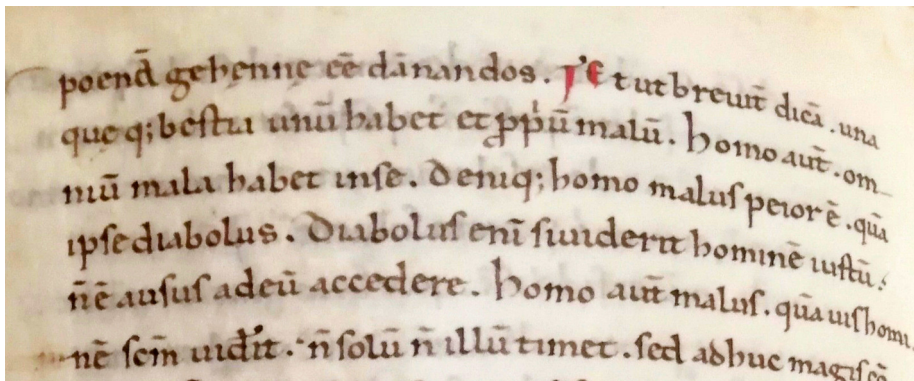 poenā gehennę eē dānandos. Et ut breuit̄ dicā. una
queq; bestia unū habet et ꝓpⁱū malū. homo aut̄. om
niū mala habet inse. Deniq; homo maluſ peior ē. quā
ipse diabolus. Diabolus eni ſi uiderit hominē iuſtū.
n̄ ē auſuſ ad eū accedere. homo aut̄ maluſ. quāuiſ homi
nē ſcm̄ uidᵉit. n̄ ſolū n̄ illū timet. ſed adhuc magiſ